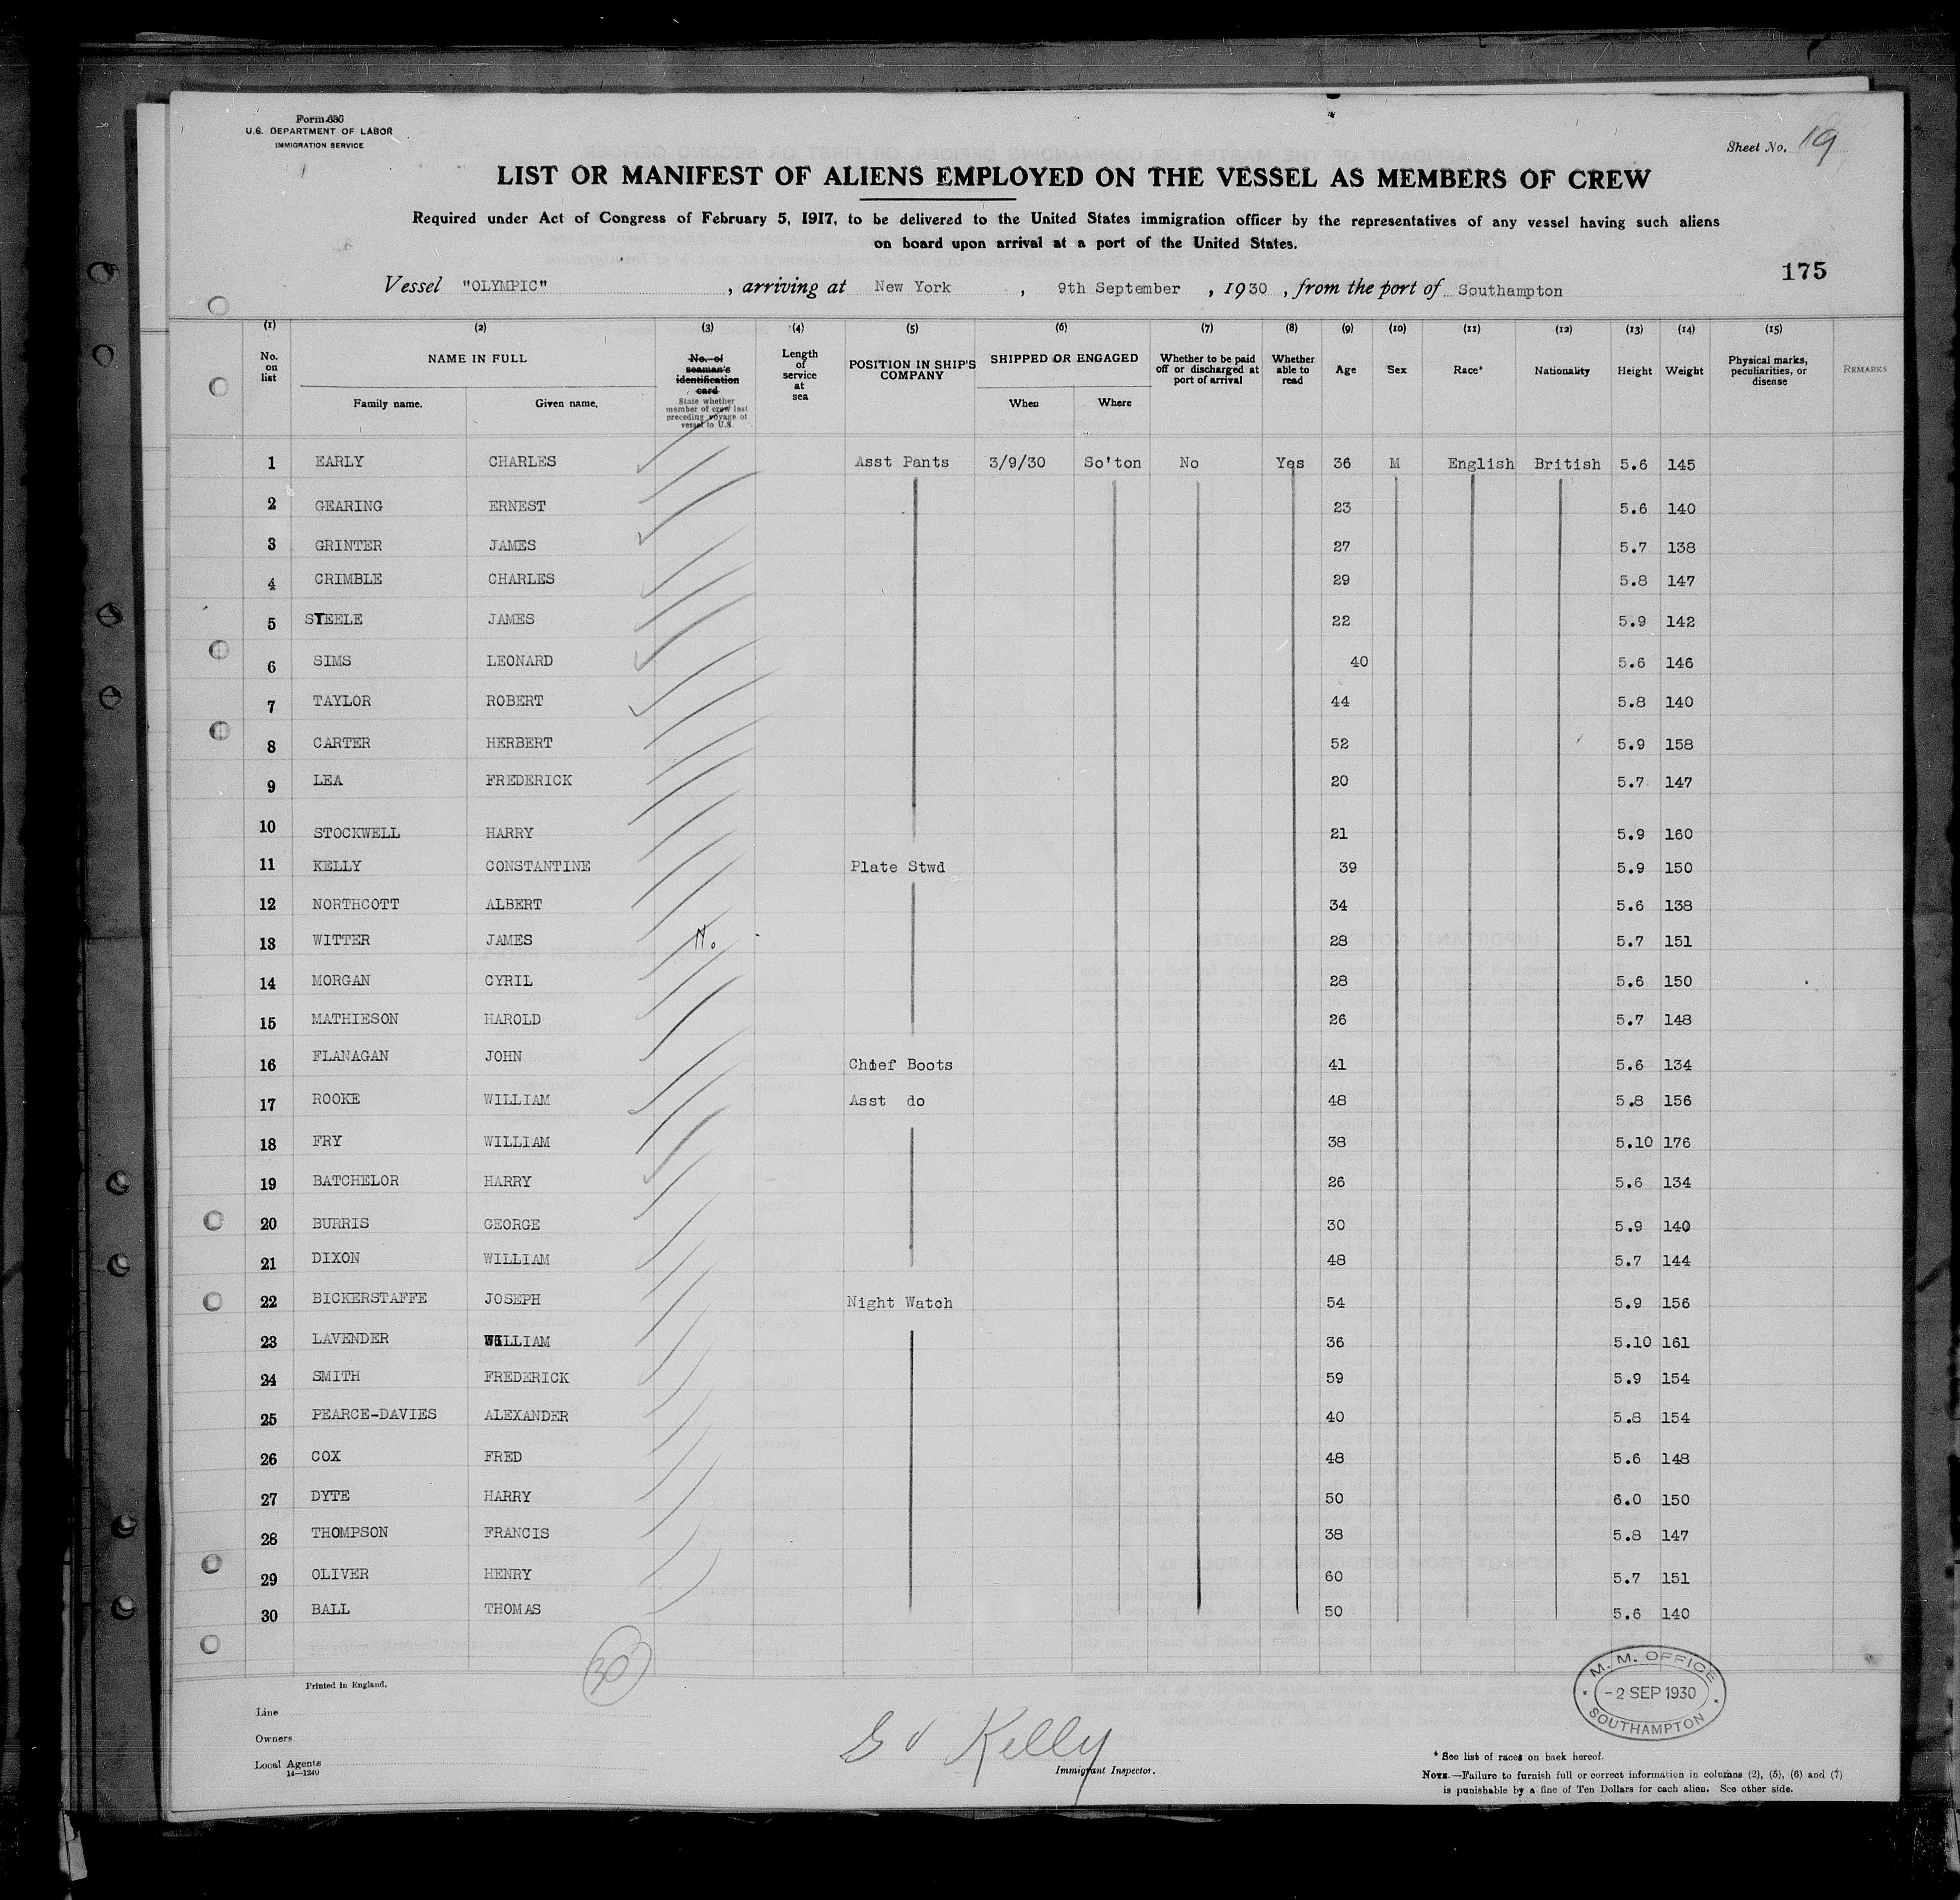 Form 686
U.S. DEPARTMENT OF LABOR
IMMIGRATION SERVICE
Sheet No. 19
LIST OR MANIFEST OF ALIENS EMPLOYED ON THE VESSEL AS MEMBERS OF CREW
Required under Act of Congress of February 5, 1917, to be delivered to the United States immigration officer by the representatives of any vessel having such aliens
on board upon arrival at a port of the United States.
175
Vessel "OLYMPIC", arriving at New York, 9th September, 1930, from the port of Southampton
(1) (2) (3) (4) (5) (6) (7) (8) (9) (10) (11) (12) (13) (14) (15)
No. on list
NAME IN FULL
Family name. Given name.
No. of seaman's identification card
State whether member of crew last preceding voyage of vessel to U.S.
Length of service at sea
POSITION IN SHIP'S COMPANY
SHIPPED OR ENGAGED
When Where
Whether to be paid off or discharged at port of arrival
Whether able to read
Age
Sex
Race*
Nationality
Height
Weight
Physical marks, peculiarities, or disease
REMARKS
1 EARLY CHARLES Asst Pants 3/9/30 So'ton No Yes 36 M English British 5.6 145
2 GEARING ERNEST 23 5.6 140
3 GRINTER JAMES 27 5.7 138
4 CRIMBLE CHARLES 29 5.8 147
5 STEELE JAMES 22 5.9 142
6 SIMS LEONARD 40 5.6 146
7 TAYLOR ROBERT 44 5.8 140
8 CARTER HERBERT 52 5.9 158
9 LEA FREDERICK 20 5.7 147
10 STOCKWELL HARRY 21 5.9 160
11 KELLY CONSTANTINE Plate Stwd 39 5.9 150
12 NORTHCOTT ALBERT 34 5.6 138
13 WITTER JAMES No 28 5.7 151
14 MORGAN CYRIL 28 5.6 150
15 MATHIESON HAROLD 26 5.7 148
16 FLANAGAN JOHN Chief Boots 41 5.6 134
17 ROOKE WILLIAM Asst do 48 5.8 156
18 FRY WILLIAM 38 5.10 176
19 BATCHELOR HARRY 26 5.6 134
20 BURRIS GEORGE 30 5.9 140
21 DIXON WILLIAM 48 5.7 144
22 BICKERSTAFFE JOSEPH Night Watch 54 5.9 156
23 LAVENDER WILLIAM 36 5.10 161
24 SMITH FREDERICK 59 5.9 154
25 PEARCE-DAVIES ALEXANDER 40 5.8 154
26 COX FRED 48 5.6 148
27 DYTE HARRY 50 6.0 150
28 THOMPSON FRANCIS 38 5.8 147
29 OLIVER HENRY 60 5.7 151
30 BALL THOMAS 50 5.6 140
30
Printed in England.
Line
Owners
Local Agents
14—1240
Kelly
Immigrant Inspector.
M. M. OFFICE
-2 SEP 1930
SOUTHAMPTON
* See list of races on back hereof.
NOTE.—Failure to furnish full or correct information in columns (2), (5), (6) and (7)
is punishable by a fine of Ten Dollars for each alien. See other side.